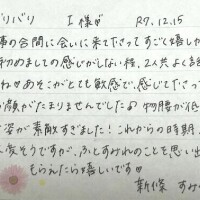 バリバリ I様♡ R7.12.15
事の合間に会いに来て下さってすごく嬉しか
初めましての感じがしない程、2人共よく話
ね♡あそこがとても敏感で、感じて下さっ
お顔がたまりませんでした♪ 物腰が柔
姿が素敵すぎました！これからの時期、
変そうですが、ふとすみれのことを思い出
もらえたら嬉しいです♡
新條 すみ